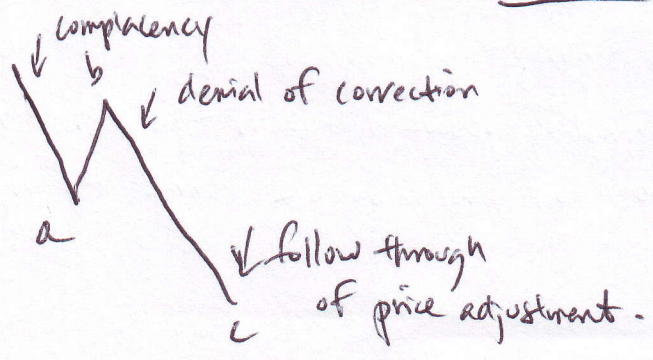 complacency
b
denial of correction
a
follow through
of price adjustment.
c